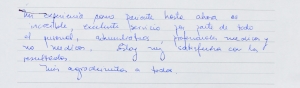 Mi experiencia como paciente hasta ahora es
increíble, excelente servicio por parte de todo
el personal, administrativo, profesionales médicos y
no médicos. Estoy muy satisfecha con los
resultados.
Mis agradecimientos a todos.